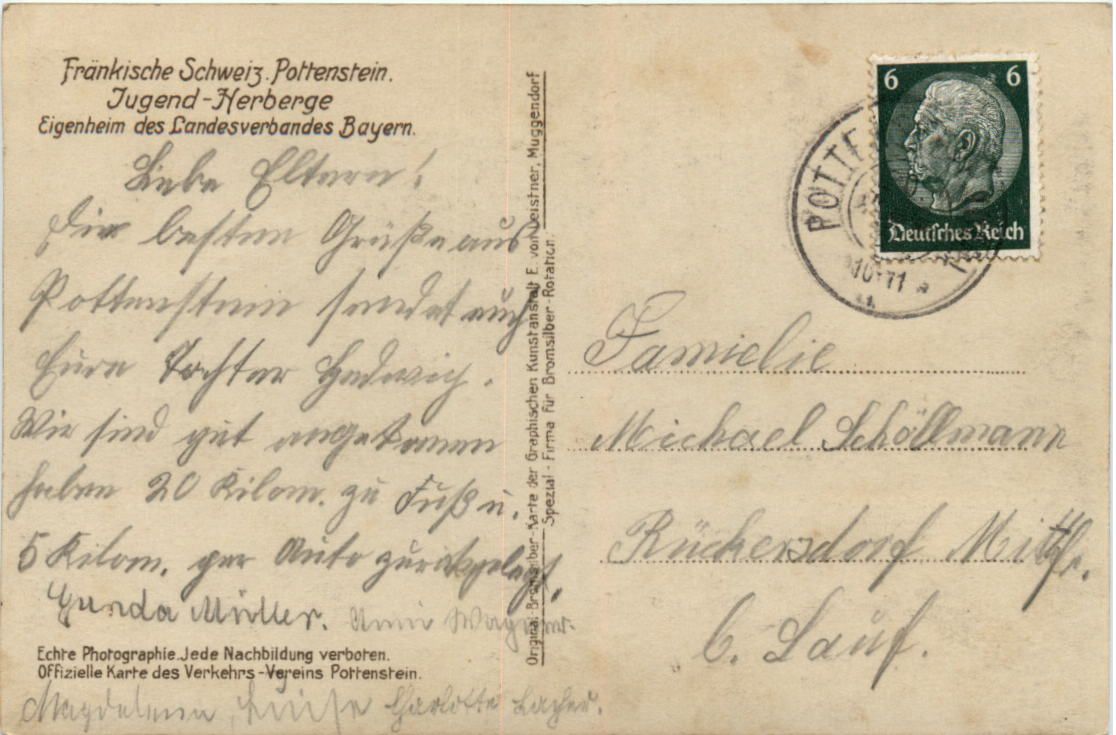 Fränkische Schweiz. Pottenstein.
Jugend-Herberge
Eigenheim des Landesverbandes Bayern.
Liebe Eltern!
Die besten Grüße aus
Pottenstein sendet euch
Eure Tochter Hedwich.
Wir sind gut angekomen
haben 20 Kilom. zu Fuß u.
5 Kilom. per Auto zurükgelegt.
Gunda Müller. Anni Wagner.
Echte Photographie. Jede Nachbildung verboten.
Offizielle Karte des Verkehrs-Vereins Pottenstein.
Magdalena, Luise Charlotte Lacher.
Original-Bromsilber-Karte der Graphischen Kunstanstalt E. von Deistner, Muggendorf
Spezial-Firma für Bromsilber-Rotation.
6 6
Deutsches Reich
POTTE
10-11
Familie
Michael Schöllmann
Rückersdorf Mittfr.
b. Lauf.